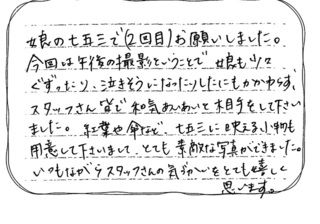 娘の七五三で(2回目)お願いしました。
今回は午後の撮影ということで、娘も少々
ぐずったり、泣きそうになったりしたにもかかわらず、
スタッフさん皆で和気あいあいと相手をして下さい
ました。紅葉や傘など、七五三に映える小物も
用意して下さいまして、とても素敵な写真ができました。
いつもながらスタッフさんの気づかいをとても嬉しく
思います。